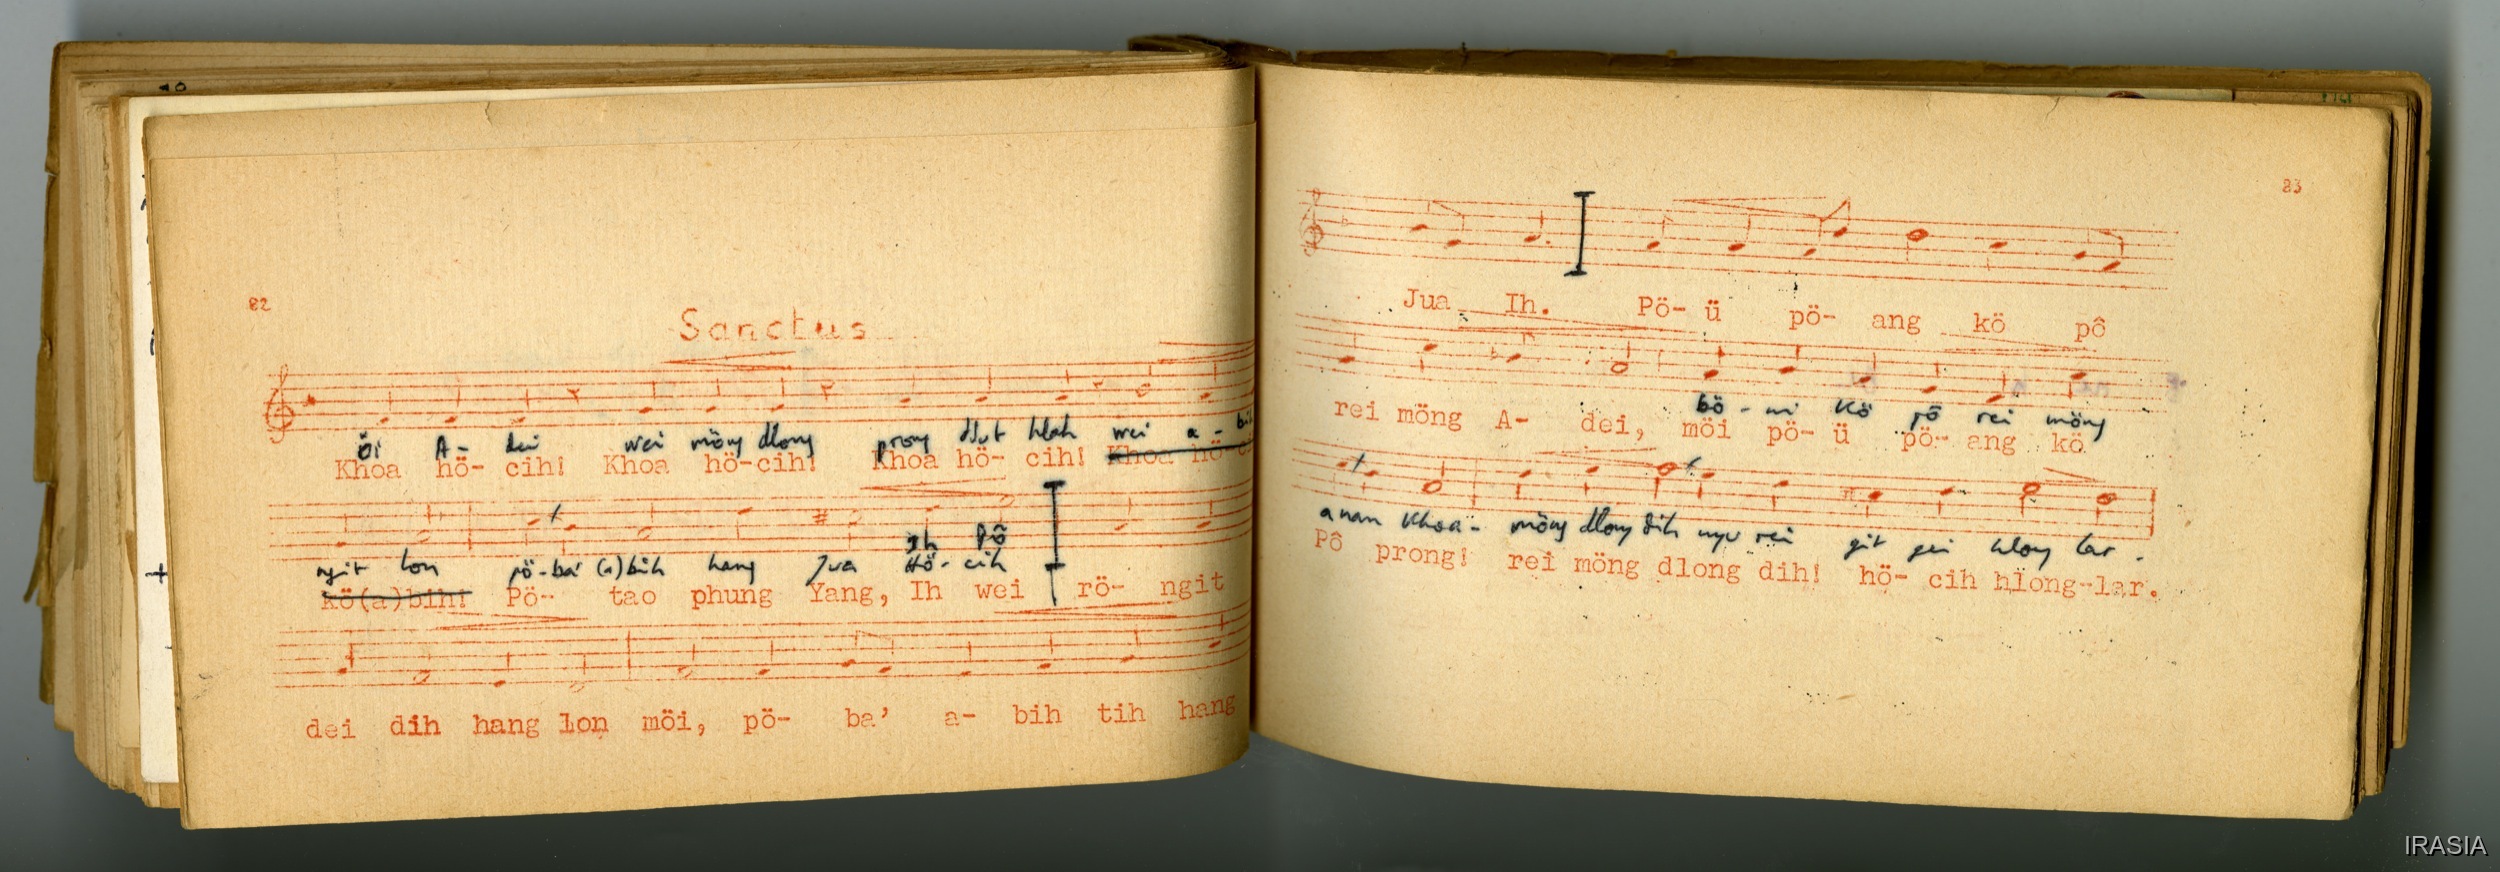 82
Sanctus
öi A- dei wei möng dlong prong dlut hlah wei a- bih
Khoa hö- cih! Khoa hö-cih! Khoa hö- cih! Khoa hö-
Ih Pô
ngit lon pö-ba' (a)bih hang Jua Hö- cih
kö(a)bih! Pö- tao phung Yang, Ih wei rö- ngit
dei dih hang lon möi, pö- ba' a- bih tih hang
83
Jua Ih. Pö- ü pö- ang kö pô
bö - ni kö pô rei möng
rei möng A- dei, möi pö- ü pö- ang kö
anan Khoa- möng dlong dih nyu rei git gei hlong lar.
Pô prong! rei möng dlong dih! hö- cih hlong-lar.
IRASIA